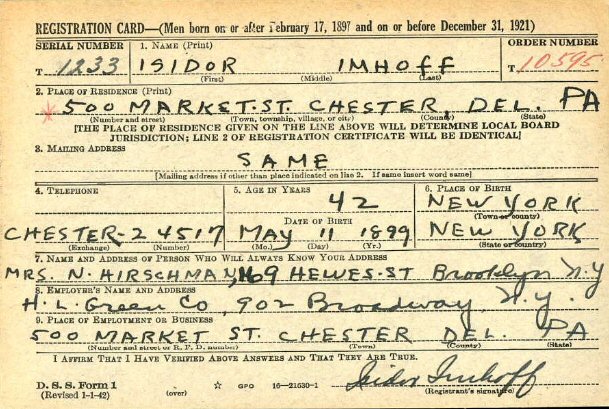 REGISTRATION CARD—(Men born on or after February 17, 1897 and on or before December 31, 1921)
SERIAL NUMBER 1. NAME (Print) ORDER NUMBER
T 1233 ISIDOR IMHOFF T 10595
(First) (Middle) (Last)
2. PLACE OF RESIDENCE (Print)
500 MARKET. ST. CHESTER, DEL. PA
(Number and street) (Town, township, village, or city) (County) (State)
[THE PLACE OF RESIDENCE GIVEN ON THE LINE ABOVE WILL DETERMINE LOCAL BOARD
JURISDICTION; LINE 2 OF REGISTRATION CERTIFICATE WILL BE IDENTICAL]
3. MAILING ADDRESS
SAME
[Mailing address if other than place indicated on line 2. If same insert word same]
4. TELEPHONE 5. AGE IN YEARS 6. PLACE OF BIRTH
42 NEW YORK
DATE OF BIRTH (Town or county)
CHESTER-2 4517 MAY 11 1899 NEW YORK
(Exchange) (Number) (Mo.) (Day) (Yr.) (State or country)
7. NAME AND ADDRESS OF PERSON WHO WILL ALWAYS KNOW YOUR ADDRESS
MRS. N. HIRSCHMAN, 169 HEWES-ST Brooklyn N.Y
8. EMPLOYER'S NAME AND ADDRESS
H. L. Green Co, 902 Broadway, N.Y.
9. PLACE OF EMPLOYMENT OR BUSINESS
500 MARKET ST. CHESTER DEL. PA
(Number and street or R. F. D. number) (Town) (County) (State)
I AFFIRM THAT I HAVE VERIFIED ABOVE ANSWERS AND THAT THEY ARE TRUE.
D. S. S. Form 1 GPO 16-21630-1 Isidor Imhoff
(Revised 1-1-42) (over) (Registrant's signature)